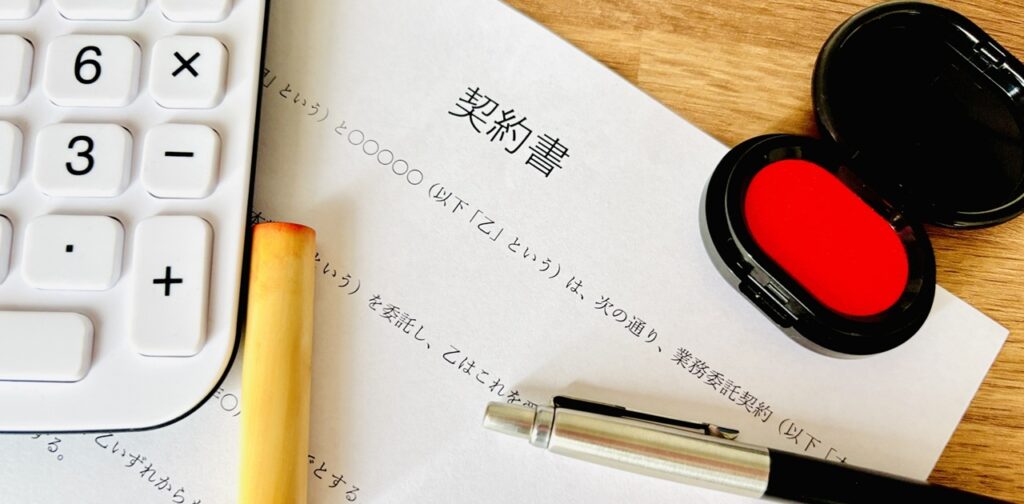 6 ×
3 −
. +
契約書
」という）と○○○○○（以下「乙」という）は、次の通り、業務委託契約（以下「
という）を委託し、乙はこれを
乙いずれから
する。
とする